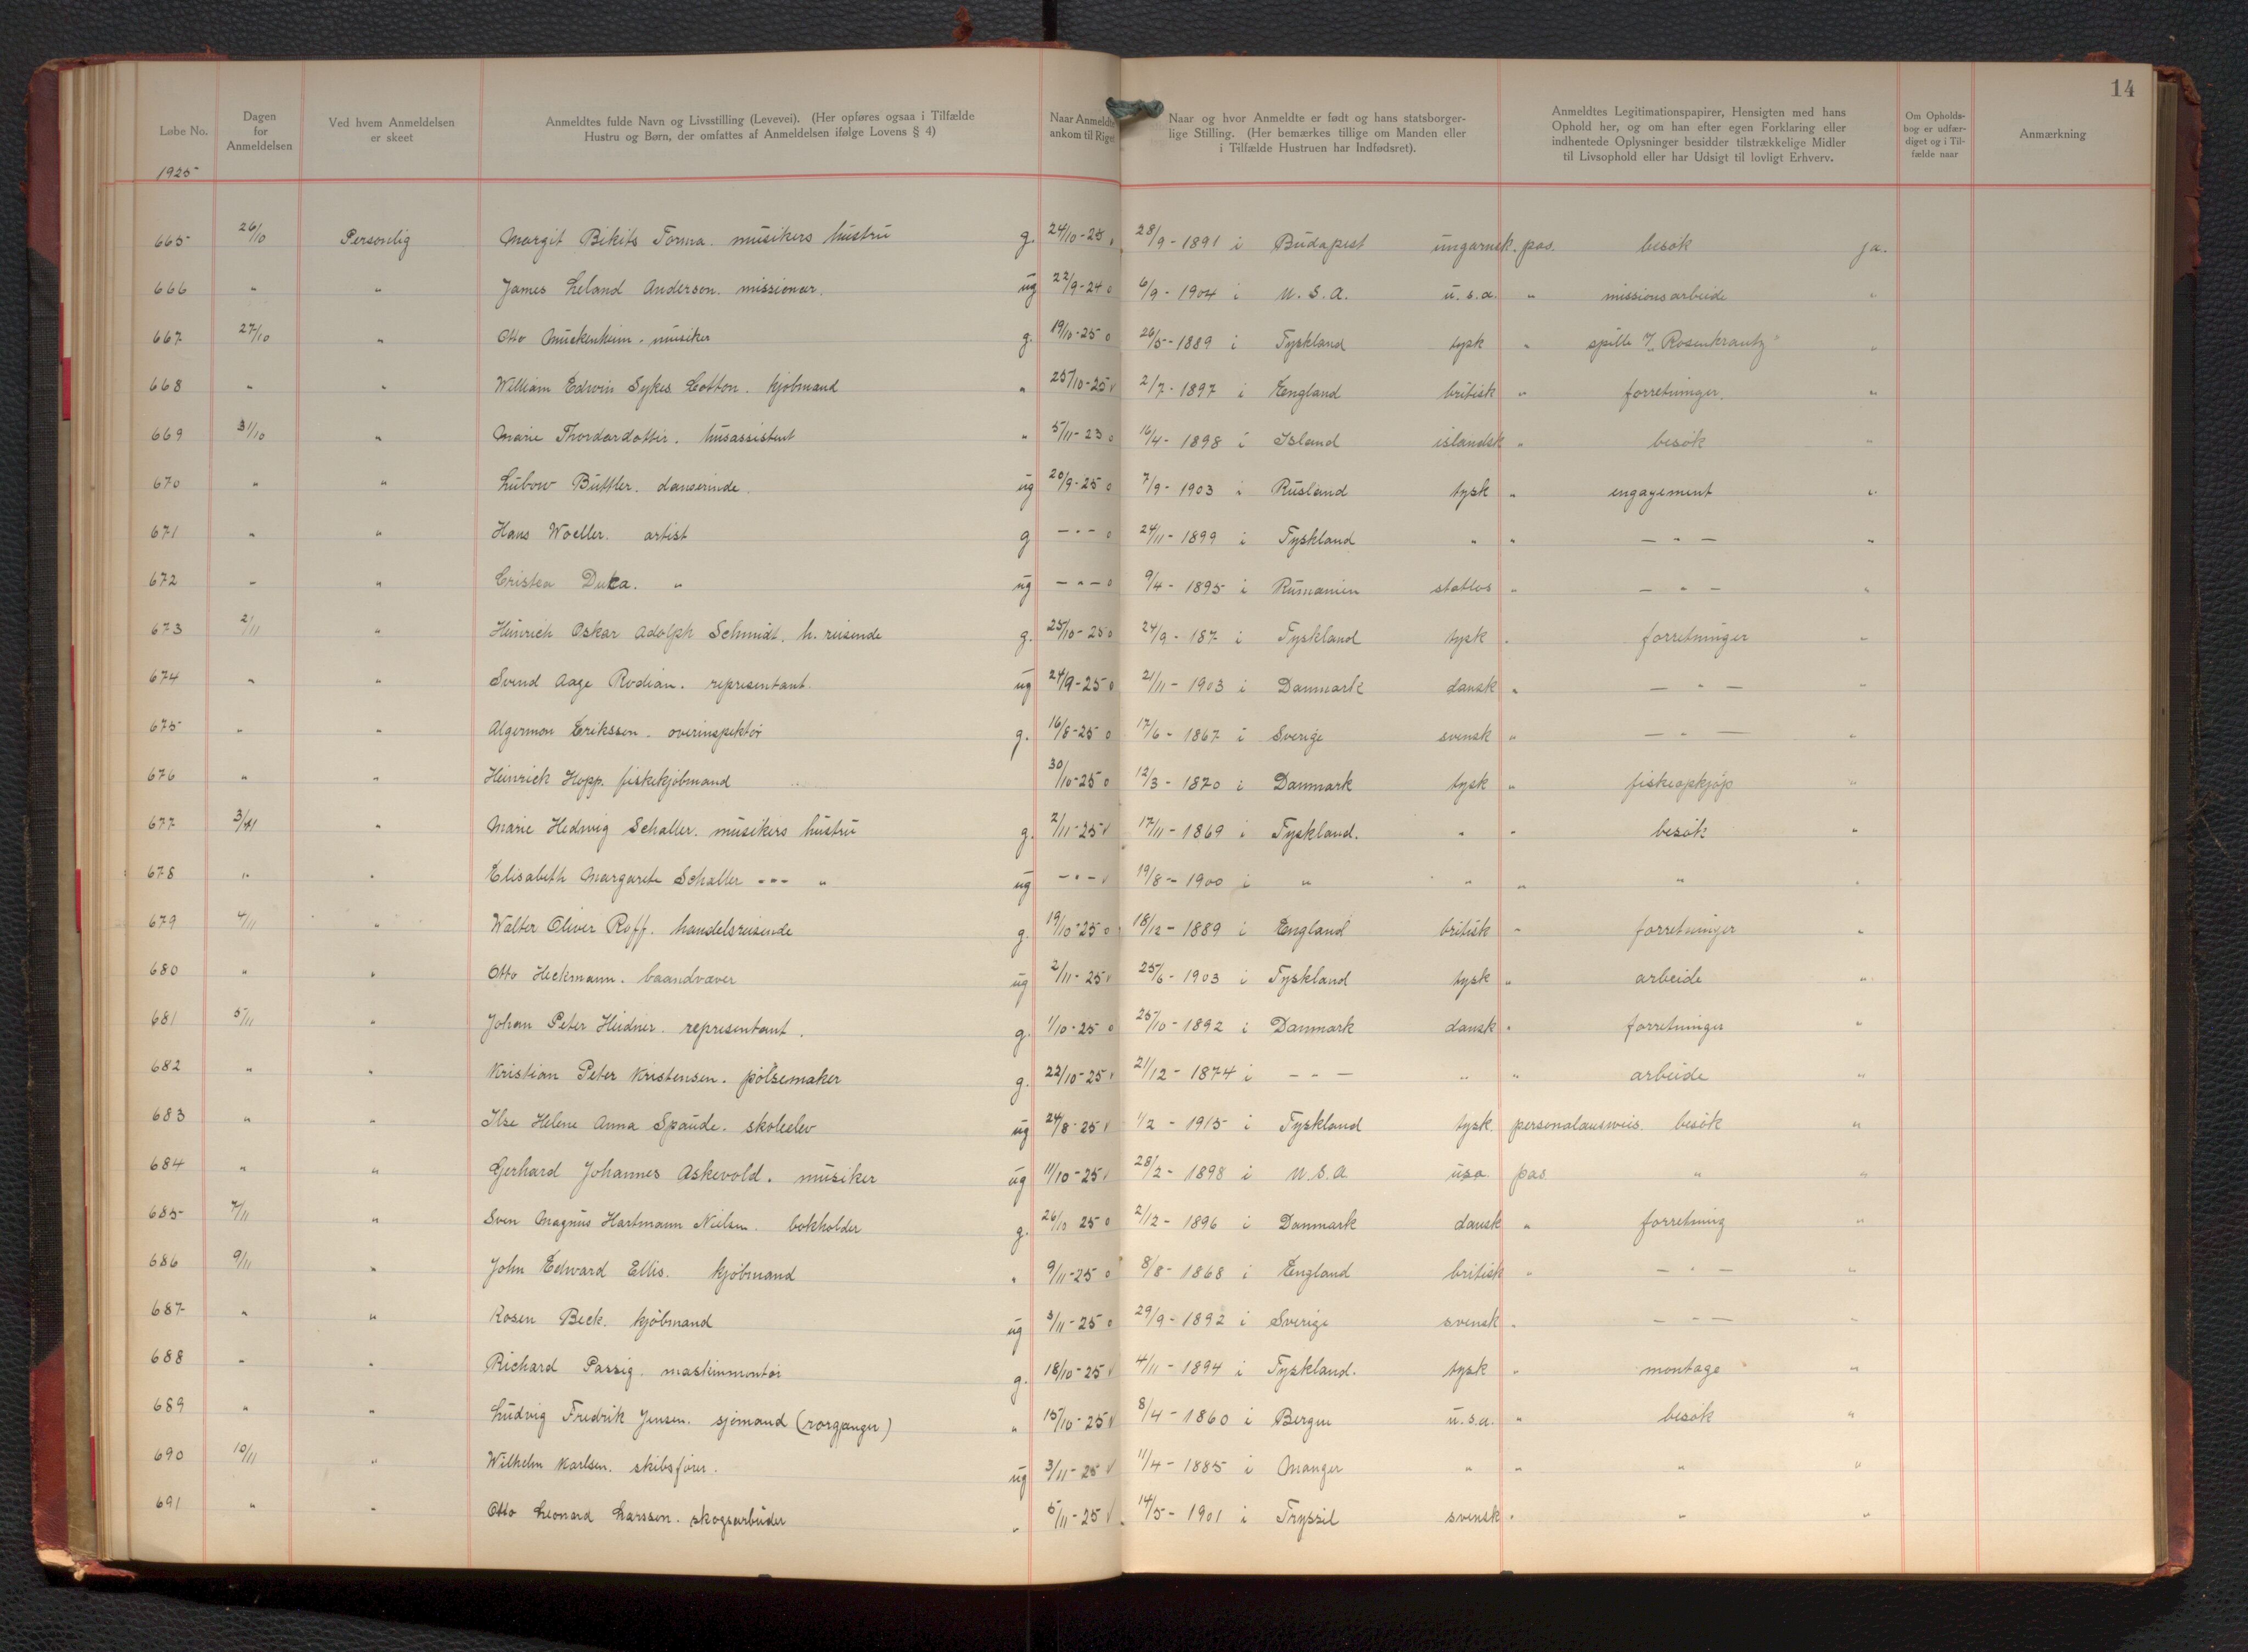 14
Løbe No.
Dagen for Anmeldelsen
Ved hvem Anmeldelsen er skeet
Anmeldtes fulde Navn og Livsstilling (Levevei). (Her opføres ogsaa i Tilfælde Hustru og Børn, der omfattes af Anmeldelsen ifølge Lovens § 4)
Naar Anmeldte ankom til Riget
Naar og hvor Anmeldte er født og hans statsborgerlige Stilling. (Her bemærkes tillige om Manden eller i Tilfælde Hustruen har Indfødsret).
Anmeldtes Legitimationspapirer, Hensigten med hans Ophold her, og om han efter egen Forklaring eller indhentede Oplysninger besidder tilstrækkelige Midler til Livsophold eller har Udsigt til lovligt Erhverv.
Om Opholdsbog er udfærdiget og i Tilfælde naar
Anmærkning
1925
665 26/10 Personlig Margit Bikits Torma. musikers hustru g. 24/10-25 28/9-1891 i Budapest ungarnsk. pas. besøk ja.
666 " " James Leland Anderson. missionær. ug 22/9-24 o 6/9-1904 i U.S.A. u.s.a. " missionsarbeide "
667 27/10 " Otto Muckenheim. musiker g. 19/10-25 o 26/5-1889 i Tyskland tysk " spille "Rosenkrantz" "
668 " " William Edwin Sykes Cotton. kjøbmand " 25/10-25 v 2/7-1897 i England britisk " forretninger. "
669 31/10 " Marie Thordardottir. husassistent " 5/11-23 o 16/4-1898 i Island islandsk " besøk "
670 " " Lubow Buttler. danserinde. ug 20/9-25 o 7/9-1903 i Rusland tysk " engagement "
671 " " Hans Woeller. artist g — " — o 24/11-1899 i Tyskland " " — " — "
672 " " Cristea Duka. " ug — " — o 9/4-1895 i Rumanien statløs " — " — "
673 2/11 " Heinrich Oskar Adolph Schmidt. h. reisende g. 25/10-25 o 24/9-187 i Tyskland tysk " forretninger "
674 " " Svend Aage Rodian. representant. ug 24/9-25 o 21/11-1903 i Danmark dansk " — " — "
675 " " Algermon Erikssen. overinspektør g. 16/8-25 o 17/6-1867 i Sverige svensk " — " — "
676 " " Heinrich Hopp. fiskekjøbmand 30/10-25 o 12/3-1870 i Danmark tysk " fiskeopkjøp "
677 3/11 " Marie Hedwig Schaller. musikers hustru g. 2/11-25 v 17/11-1869 i Tyskland. " " besøk "
678 " " Elisabeth Margarete Schaller --- " ug — " — v 19/8-1900 i " " " " "
679 4/11 " Walter Oliver Roff. handelsreisende g. 19/10-25 o 18/12-1889 i England britisk " forretninger "
680 " " Otto Heckmann. baandvæver ug 2/11-25 v 25/6-1903 i Tyskland tysk " arbeide "
681 5/11 " Johan Peter Heidner. representant. g. 1/10-25 o 25/10-1892 i Danmark dansk " forretninger "
682 " " Kristian Peter Kristensen. pølsemaker g. 22/10-25 v 21/12-1874 i — " — " " arbeide "
683 " " Ilse Helene Anna Spaude. skoleelev ug 24/8-25 v 1/2-1915 i Tyskland tysk. personalausweis. besøk "
684 " " Gerhard Johannes Askevold. musiker ug 11/10-25 v 28/2-1898 i U.S.A usa. pas " "
685 7/11 " Sven Magnus Hartmann Nielsen. bokholder g. 26/10 25 o 2/12-1896 i Danmark dansk " forretning "
686 9/11 " John Edward Ellis. kjøbmand " 9/11-25 o 8/8-1868 i England britisk " — " — "
687 " " Rosen Beck. kjøbmand ug 3/11-25 o 29/9-1892 i Sverige svensk " — " — "
688 " " Richard Passig. maskinmontør g. 18/10-25 v 4/11-1894 i Tyskland. tysk " montage "
689 " " Ludvig Fredrik Jensen. sjømand (rorgjænger) " 15/10-25 v 8/4-1860 i Bergen u.s.a. " besøk "
690 10/11 " Wilhelm Karlsen. skibsfører. ug 3/11-25 v 11/4-1885 i Manger " " " "
691 " " Otto Leonard Larssen. skogsarbeider " 5/11-25 v 14/5-1901 i Trysil svensk " " "